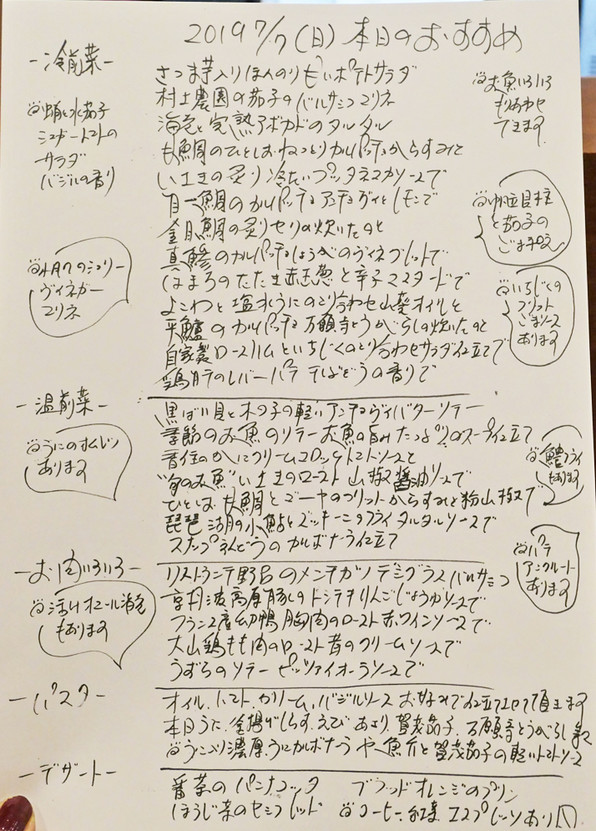 2019 7/7 (日) 本日のおすすめ
-冷前菜-
さつま芋入りほんのり甘いポテトサラダ
村上農園の茄子のバルサミコマリネ
海老と完熟アボカドのタルタル
甘鯛のひとしおねっとりカルパッチョからすみと
いさきの炙り冷たいプッタネスカソースで
目一鯛のカルパッチョアンチョヴィとレモンで
金目鯛の炙りセリの炊いたのと
真鯵のカルパッチョしょうがのヴィネグレットで
はまちのたたき赤玉葱と辛子マスタードで
よこわと塩水うにのとり合わせ山葵オイルと
平鱸のカルパッチョ万願寺とうがらしの炊いたのと
自家製ロースハムといちじくのとり合わせサラダ仕立てで
鶏肝のレバーパテ干しぶどうの香りで
お魚いろいろ
もりあわせ
できます
蛸と水茄子
サラダ
バジルの香り
と茄子の
ごま和え
ヴィネガー
マリネ
いちじくの
フリット
ごまソース
あります
-温前菜-
黒ばい貝と木の子の軽いアンチョヴィバターソテー
季節のお魚のソテーお魚の旨みたっぷりのスープ仕立て
香住のかにクリームコロッケトマトソースと
"旬のお魚"いさきのロースト山椒醤油ソースで
ひとしお甘鯛とゴーヤのフリットからすみと粉山椒で
琵琶湖の小鮎とズッキーニのフライタルタルソースで
スナップえんどうのカルボナーラ仕立て
うにのオムレツ
あります
鱧フライ
もあります
-お肉いろいろ-
リストランテ野呂のメンチカツデミグラスバルサミコ
京丹波高原豚のトンテキりんごじょうゆソースで
フランス産幼鴨胸肉のロースト赤ワインソースで
大山鶏もも肉のロースト昔のクリームソースで
うずらのソテーピッツァイオーラソースで
活けオマール海老
もあります
パテ
アンクルート
あります
-パスタ-
オイル、トマト、クリーム、バジルソースお好みで仕立てさせて頂きます
本日うに、釜揚げしらす、えび、あさり、賀茂茄子、万願寺とうがらし
うにたっぷり濃厚うにカルボナーラや魚介と賀茂茄子の軽いトマトソース
-デザート-
番茶のパンナコッタ ブラッドオレンジのプリン
ほうじ茶のセミフレッド コーヒー、紅茶、エスプレッソあり〼